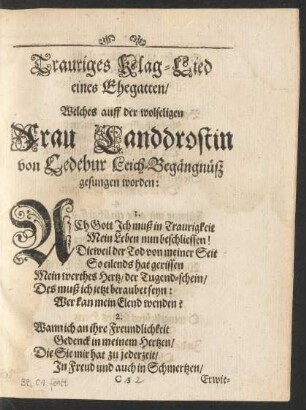 Trauriges Klag-Lied
eines Ehegatten/
Welches auff der wolseligen
Frau Landdrostin
von Ledebur Leich-Begängnüß
gesungen worden:
1.
ACh Gott Ich muß in Traurigkeit
Mein Leben nun beschliessen!
Dieweil der Tod von meiner Seit
So eilends hat gerissen
Mein werthes Hertz/der Tugend-schein/
Des muß ich jetzt beraubet seyn:
Wer kan mein Elend wenden?
2.
Wann ich an ihre Freundlichkeit
Gedenck in meinem Hertzen/
Die Sie mir hat zu jederzeit/
In Freud und auch in Schmertzen/
Erwie-